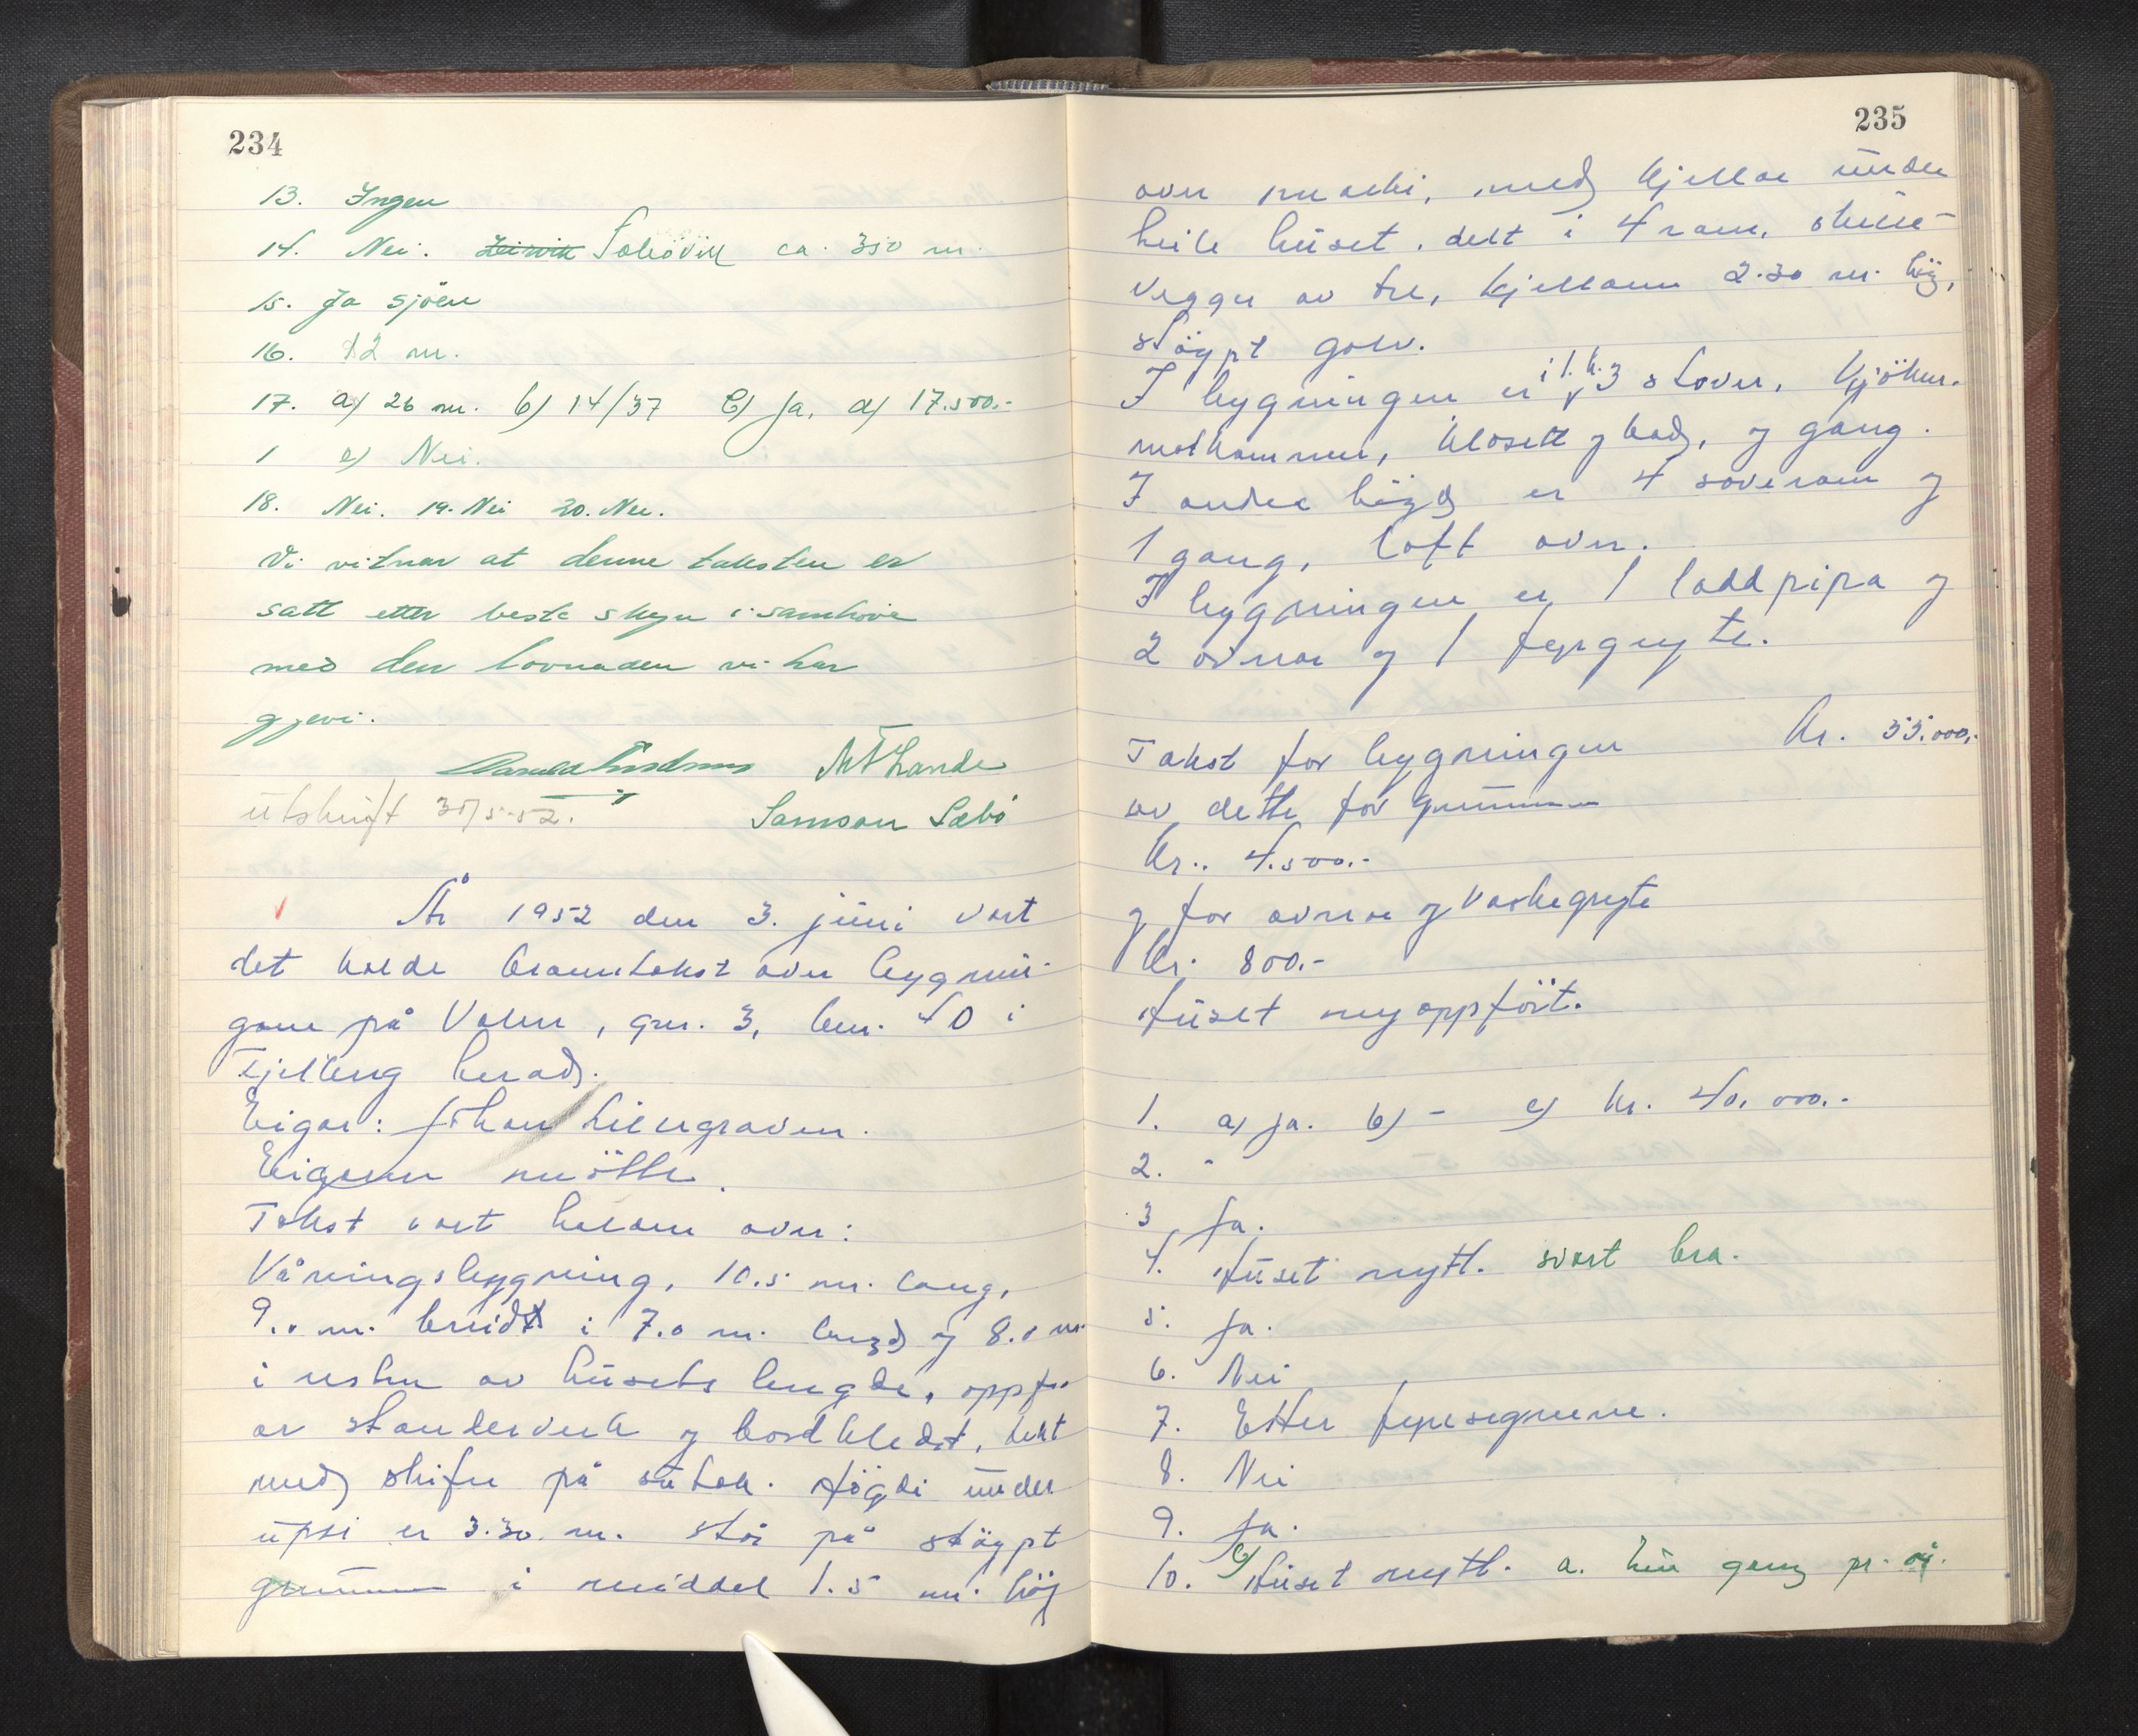 234
13. Ingen
14. Nei. Leirvik Solsövik ca. 350 m.
15. Ja sjöen
16. 12 m.
17. a) 26 m. b) 14/37 c) Ja, d) 17.500.-
1 e) Nei.
18. Nei. 19. Nei 20. Nei.
Vi vitnar at denne taksten er
satt etter beste skyn i samhöve
med den lovnaden vi har
gjevi.
Lande
utskrift 30/5-52. Samson Sæbö
År 1952 den 3. juni vart
det halde branntakst over bygnin-
gane på Valen, gnr. 3, bnr. 40 i
Fjelberg herad.
Eigar: Johan Liengraven.
Eigaren mötte.
Takst vart halden over:
Våningsbygning, 10.5 m. lang,
9.0 m. breidt i 7.0 m. lengd og 8.0 m.
i resten av husets lengde, oppf.
av standerverk og bordkledt, tekt
med skifer på sutak. Högdi under
upsi er 3.30 m. står på stöypt
grunnmur i middel 1.5 m. hög
235
over marki, med kjellar under
heile huset, delt i 4 rom, skille-
vegger av tre, kjellaren 2.30 m. hög,
stöypt golv.
I bygningen er i 1. h. 3 stover, kjöken.
matkammer, klosett og bad, og gang.
I andre högd er 4 soverom og
1 gang, loft over.
I bygningen er 1 loddpipa og
2 ovnar og 1 fyrgryte.
Takst for bygningen Kr. 55.000,-
av dette for grunnmur
Kr.. 4.500.-
og for ovnar og vaskegryte
Kr. 800.-
Huset nyoppfört.
1. a) ja. b) - c) Kr. 40.000.-
2. -
3 Ja.
4. Huset nytt. svart bra.
5. Ja.
6. Nei
7. Etter fyresegnene.
8. Nei
9. Ja.
10. b) Huset nytt. a. ein gang pr. år.